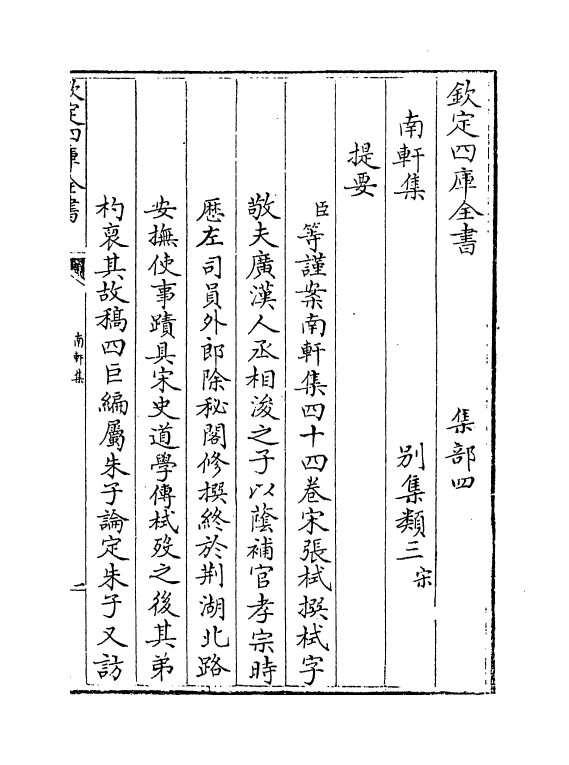 欽定四庫全書　集部四
南軒集　別集類三宋
提要
臣等謹案南軒集四十四卷宋張栻撰栻字
敬夫廣漢人丞相浚之子以䕃補官孝宗時
歷左司員外郎除秘閣修撰終於荆湖北路
安撫使事蹟具宋史道學傳栻歿之後其弟
杓裒其故稿四巨編屬朱子論定朱子又訪
欽定四庫全書
南軒集